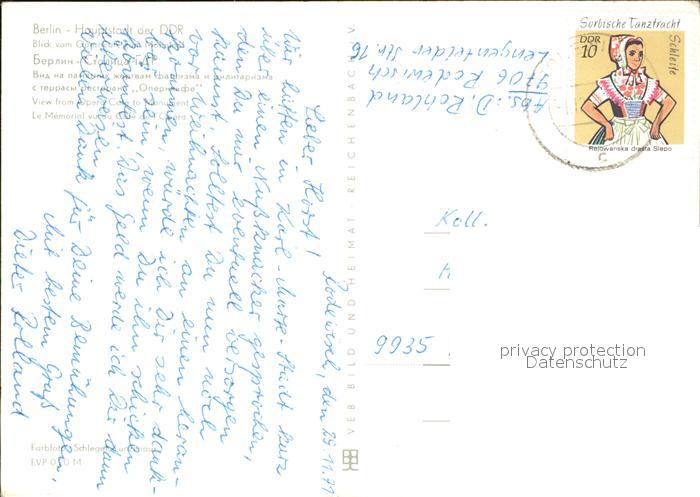 Berlin - Hauptstadt der DDR
Blick vom Operncafé zum Mahnmal
Берлин - Столица ГДР
Вид на памятник жертвам фашизма и милитаризма
с террасы ресторана „Опернкафе"
View from Opera Café to Monument
Le Mémorial vu du Café de l'Opéra
Rodewisch, den 29.11.71
Lieber Horst!
Wir hatten in Karl-Marx-Stadt kurz
über einen Nußknacker gesprochen,
den Du mir eventuell besorgen
kannst. Solltest Du nun noch
vor Weihnachten an einen heran-
kommen, würde ich Dir sehr dank-
bar sein, wenn Du ihn schicken
würdest. Das Geld werde ich Dir dann
Vielen Dank für Deine Bemühungen,
Mit bestem Gruß
Dieter Rolland
Farbfoto:
EVP 0,20 M
VEB BILD UND HEIMAT · REICHENBACH V
Abs.: D. Rolland
9706 Rodewisch
Lengenfelder Str. 16
Sorbische Tanztracht
DDR
10
Schleife
Rejowanska drasta Slepo
C
Koll.
9935
privacy protection
Datenschutz